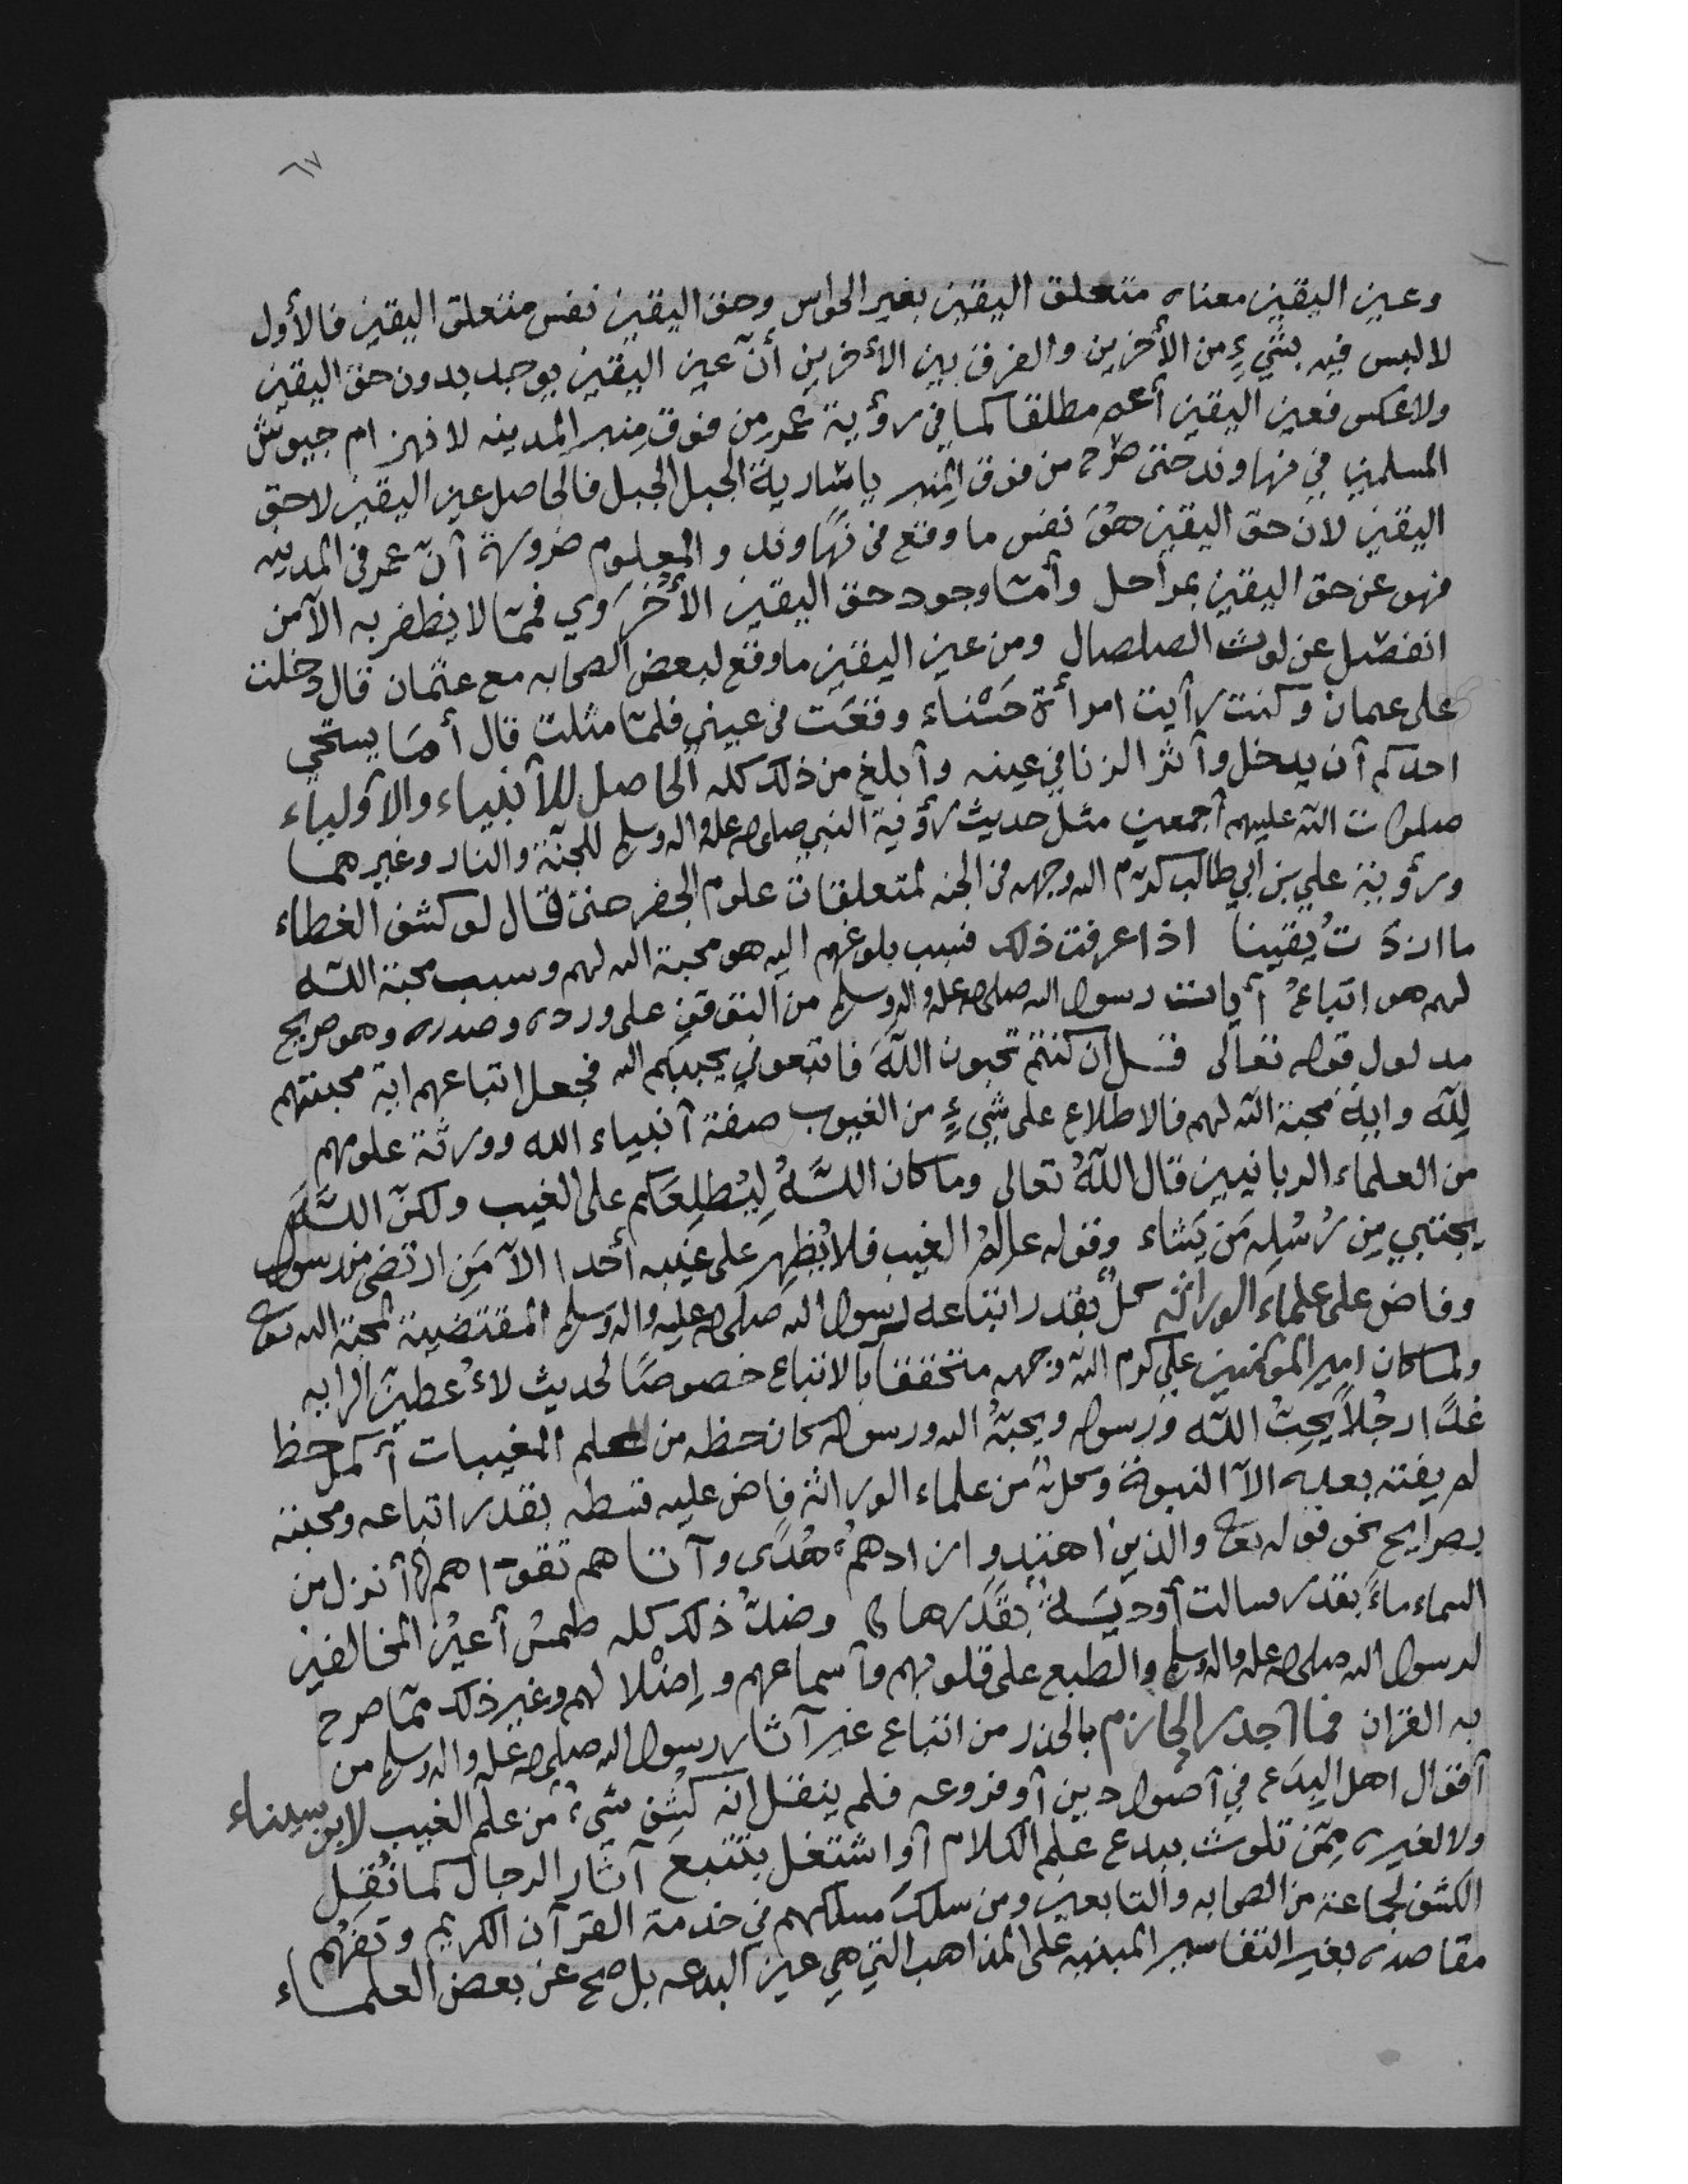 ٦٧
وعين اليقين معناه متعلق اليقين بغير الحواس وحق اليقين نفس متعلق اليقين فالأول
لا لبس فيه بشيءٍ من الأخرين والفرق بين الأخرين أنّ عين اليقين يوجد بدون حق اليقين
ولا عكس فعين اليقين أعم مطلقا كما في رؤية عمر من فوق منبر المدينه لانهزام جيوش
المسلمين في نهاوند حتى صرح من فوق المنبر يا سارية الجبل الجبل فالحاصل عين اليقين لا حق
اليقين لان حق اليقين هو نفس ما وقع في نهاوند والمعلوم ضرورة أنّ عمر في المدينه
فهو عن حق اليقين بمراحل وأمّا وجود حق اليقين الأخروي فممّا لا يظفر به الآمن
انفصل عن لوث الصلصال ومن عين اليقين ما وقع لبعض الصحابه مع عثمان قال دخلت
على عمان وكنت رأيت امرأة حسناء وقعت في عيني فلمّا مثلت قال أما يستحي
احدكم أن يدخل وأثر الزنا في عينه وأبلغ من ذلك كله الحاصل للأنبياء والأولياء
صلوات الله عليهم أجمعين مثل حديث رؤية النبي صلى الله عليه واله وسلم للجنّة والنار وغيرهما
ورؤية علي بن أبي طالب كرّم الله وجهه في الجنه لمتعلقات علوم الجفر حتى قال لو كشف الغطاء
ما ازدَدتُ يقينا اذا عرفت ذلك فسبب بلوغهم اليه هو محبة الله لهم وسبب محبة الله
لهم هو اتباعُ رسول الله صلى الله عليه واله وسلم من التوقف على ورده وصدره وهو صريح
مدلول قوله تعالى قل ان كنتم تحبون اللهَ فاتبعوني يحببكم الله فجعل اتباعهم اية محبتهم
لِلّه واية محبة الله لهم فالاطلاع على شيءٍ من الغيوب صفة أنبياء الله وورثة علومهم
من العلماء الربانيين قال اللهُ تعالى وما كان اللَّهُ لِيُطلِعَكم على الغيب ولكنّ اللَّهَ
يجتبي مِن رُسُلِه مَن يَشاء وقوله عالمُ الغيب فلا يُظهِر على غيبه أحدا الاّ مَنِ ارتضى من رسول
وفاض على علماء الوراثه كلٌ بقدر اتباعه لرسول الله صلى الله عليه واله وسلم المقتضية لمحبة الله تعالى
ولما كان امير المؤمنين علي كرم الله وجهه متحققا بالاتباع خصوصًا لحديث لاُعطين الرايه
غدًا رجُلاً يُحِبُ اللّه ورسوله ويحبّهُ الله ورسوله كان حظه من علم المغيبات أكمل حظ
لم يفته بعليه الاّ النبوة وكل من علماء الوراثة فاض عليه قسطه بقدر اتباعه ومحبته
بصرايح نحو قوله تعالى والذين اهتدوا زادهمُ هُدًى وآتاهم تقواهم أنزل من
السماء ماءً بقدر فسالت أوديَةٌ بقَدَرها وضدّ ذلك كله طمس أعيُن المخالفين
لرسول الله صلى الله عليه واله وسلم والطبع على قلوبهم وأسماعهم وإضلالهم وغير ذلك ممّا صرح
به القران فما أجدر الحازم بالحذر من اتباع غير آثار رسول الله صلى الله عليه واله وسلم من
أقوال اهل البِدَع في أصول دين أو فروعه فلم ينقل انه كُشِف شيء من علم الغيب لابن سيناء
ولا لغيره مِمّن تلوث ببدع علم الكلام أو اشتغل بتتبع آثار الرجال كما نُقِل
الكشف لجماعة من الصحابه والتابعين ومن سلك مسلكهم في خدمة القرآن الكريم وتفهُم
مقاصده بغير التفاسير المبنيه على المذاهب التي هي عين البدعه بل صح عن بعض العلماء